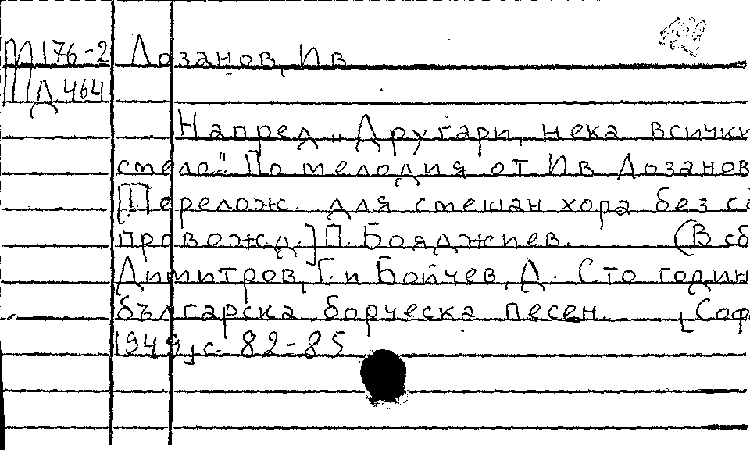 М176-2 Лозанов, Ив
Д 464
Напред „Другари, нека всички
смело." По мелодия от Ив Лозанов
[Перелож. для смешан хора без со
провожд.] П. Бояджиев. (В сб
Димитров, Г. и Бойчев, Д. Сто годин
българска борческа песен. [Соф
1949, с. 82-85